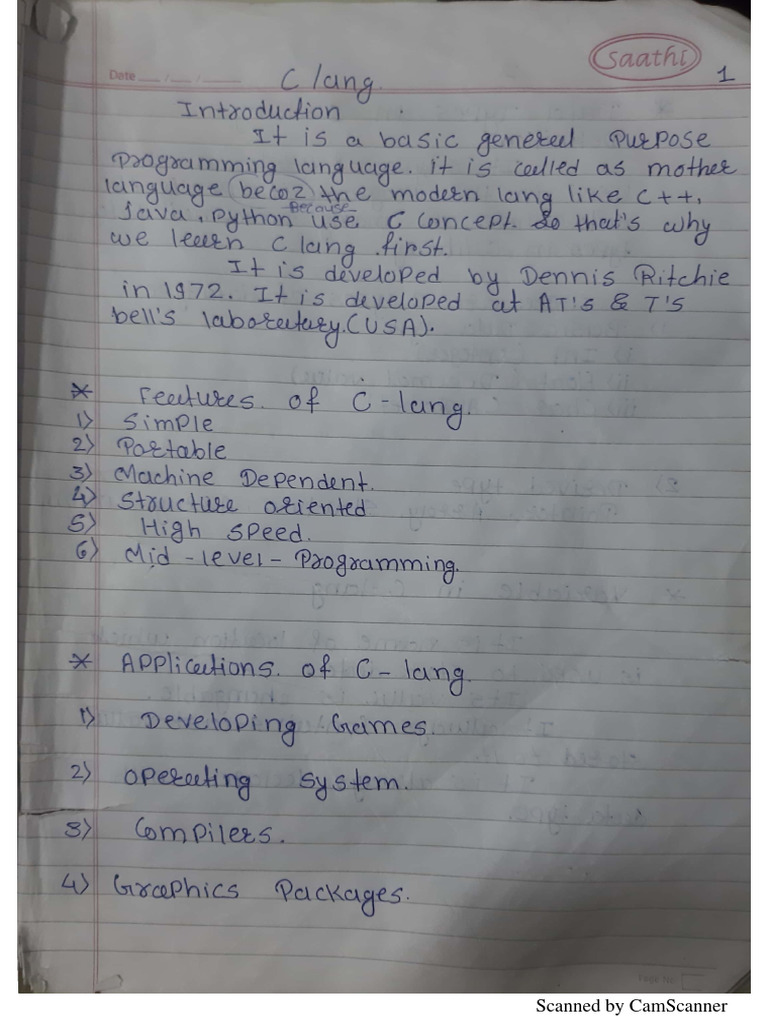 Saathi
Date ___/___/___
1
C lang.
Introduction
It is a basic general purpose
programming language. it is called as mother
language becoz the modern lang like C++,
Because
Java, Python use C concept. So that's why
we learn C lang first.
It is developed by Dennis Ritchie
in 1972. It is developed at AT'S & T'S
bell's laboratary.(USA).
* Features of C-lang.
1) Simple
2) Portable
3) Machine Dependent.
4) Structure oriented
5) High Speed.
6) Mid-level-Programming.
* Applications of C-lang.
1) Developing Games.
2) Operating System.
3) Compilers.
4) Graphics Packages.
Page No
Scanned by CamScanner